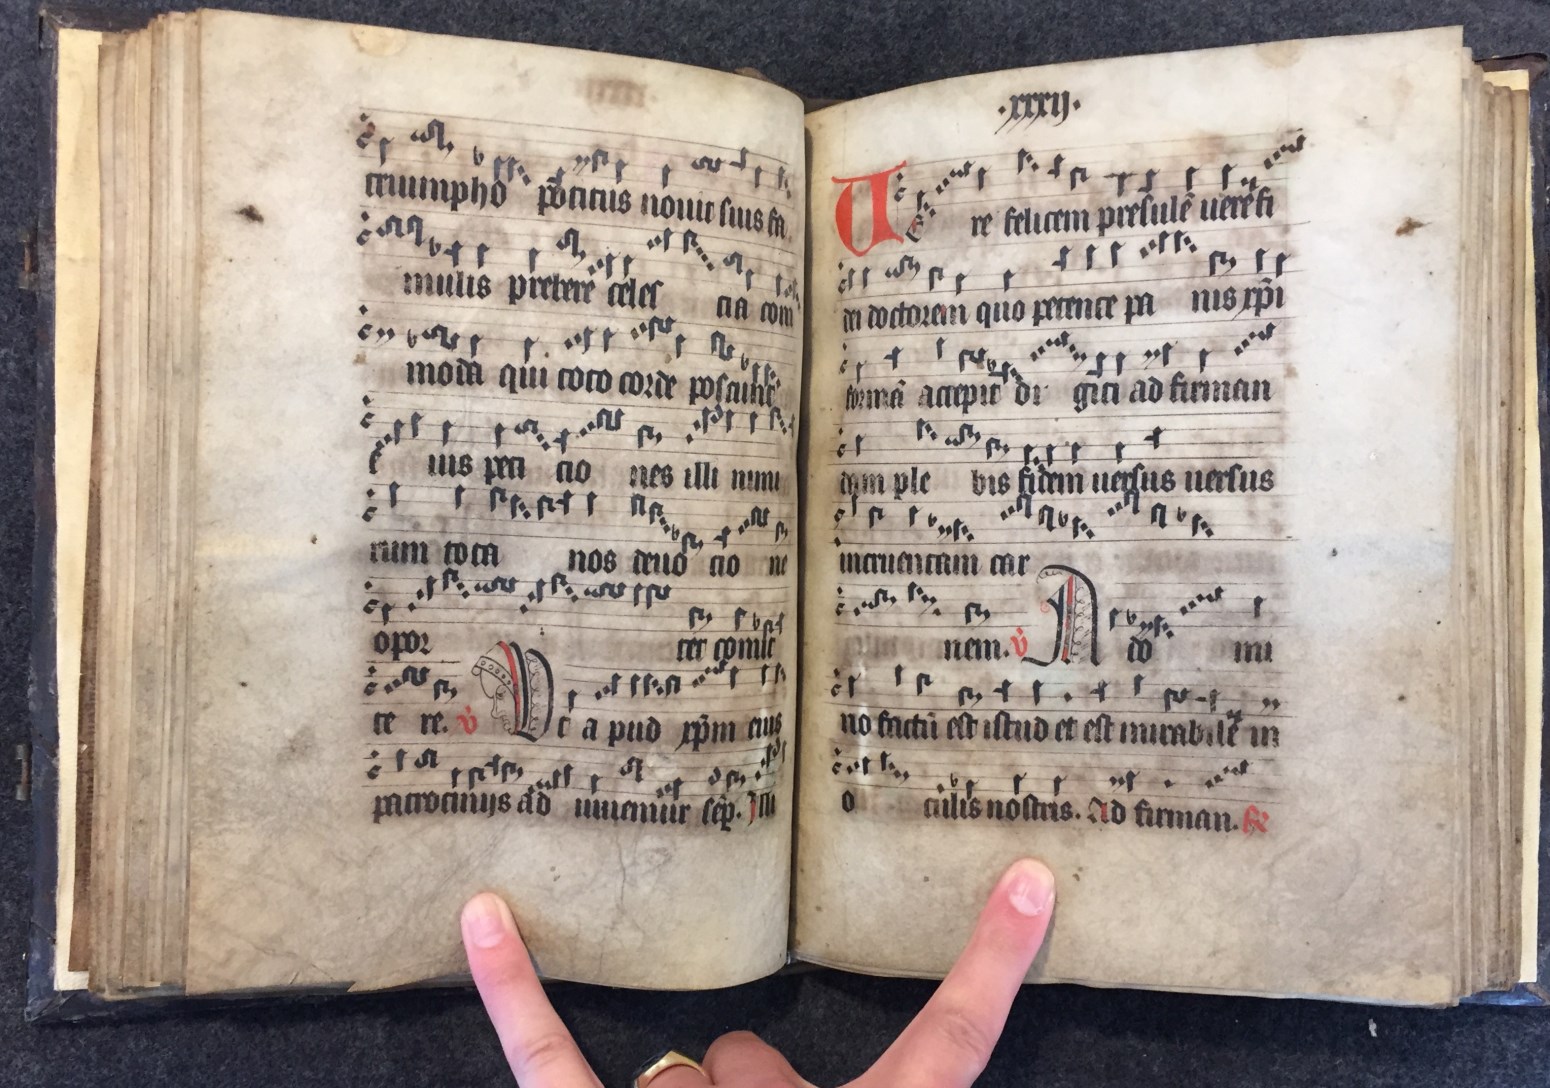 triumpho potitus nouit suis fa
mulis prebere celes tia com
moda qui toto corde poscunt
e ius peti tio nes illi nimi
rum tota nos deuo tio ne
opor tet comit
te re. v̇
Ut a pud xp̄m eius
patrocinijs ad iuuemur sēp. Illi
·xxxij·
Uere felicem presulē uere fi
dei doctorem quo petente pa nis xp̄i
formā accepit di giti ad firman
dam ple bis fidem uersus uersus
incruentam car
nem. v̇ A do mi
no factū est istud et est mirabile in
o culis nostris. Ad firman.